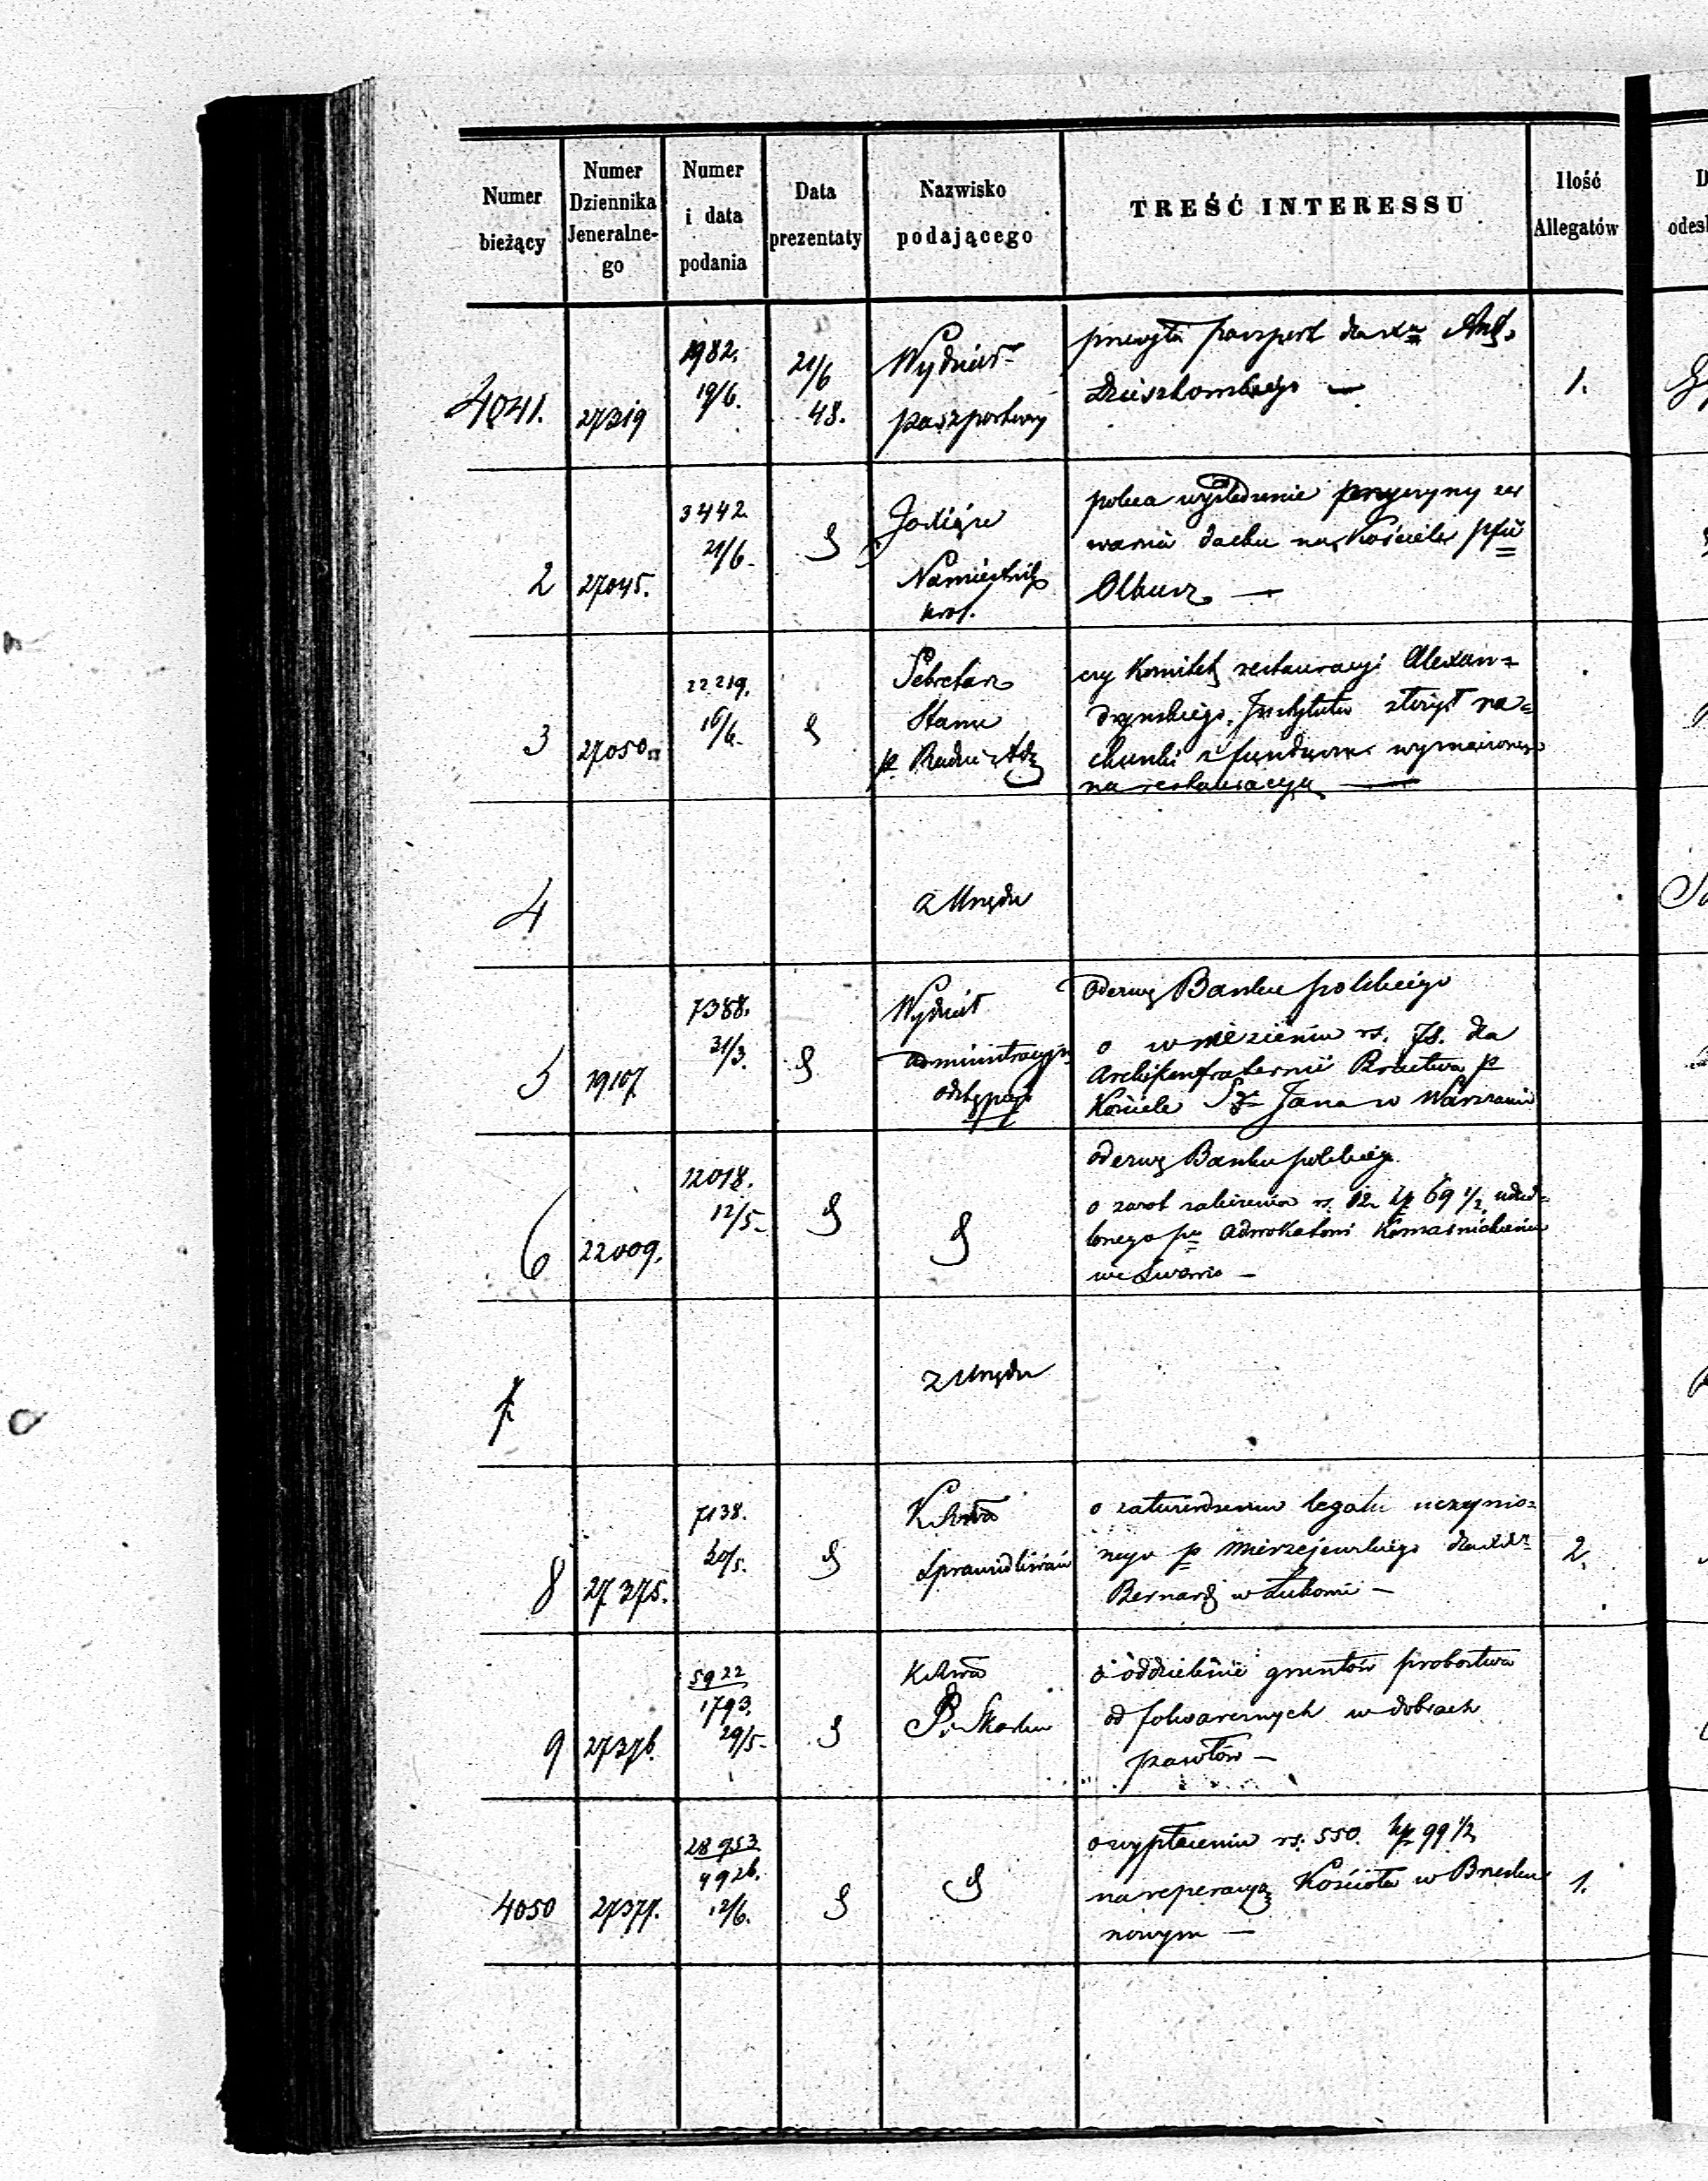 Numer bieżący
Numer Dziennika Jeneralne-go
Numer i data podania
Data prezentaty
Nazwisko podającego
TREŚĆ INTERESSU
Ilość Allegatów
4041.
27319
1982.
19/6.
21/6
48.
Wydział
paszportowy
przesyła paszport dla
1.
2
27045.
3442
21/6.
Namiestnik
Król.
poleca wyśledzenie przyczyny
dachu na Kościele
Olkusz —
3
27050
22219.
16/6.
Sekretarz
Stanu
czy Komitet restauracyi Alexan=
dryńskiego Instytutu złożył ra=
chunki z funduszu wyznaczonego
na restauracyą —
4
z Urzędu
5
19107
7388.
31/3.
Wydział
administracyjn
odezwę Banku polskiego
o wniesieniu rs. 75. dla
Archikonfraternii Bractwa p
Kościele Sgo Jana w Warszawie
6
22009.
12018.
12/5.
odezwę Banku polskiego
o zwrot zaliczenia rs. 12 kp 69 1/2
lonego adwokatowi
we Lwowie —
7
z Urzędu
8
27375.
7138.
20/5.
Sprawiedliwości
o zatwierdzenie legatu uczynio=
nego p Mierzejewskiego
Bernard w
2.
9
27376.
5922
1793.
29/5.
P. i Skarbu
o oddzielenie gruntów probostwa
od folwarcznych w dobrach
pawłów —
4050
27377.
28953
4926.
12/6.
o wypłacenie rs. 550. kp 99 1/2
na reperacyą Kościoła w Brzesku
nowym —
1.